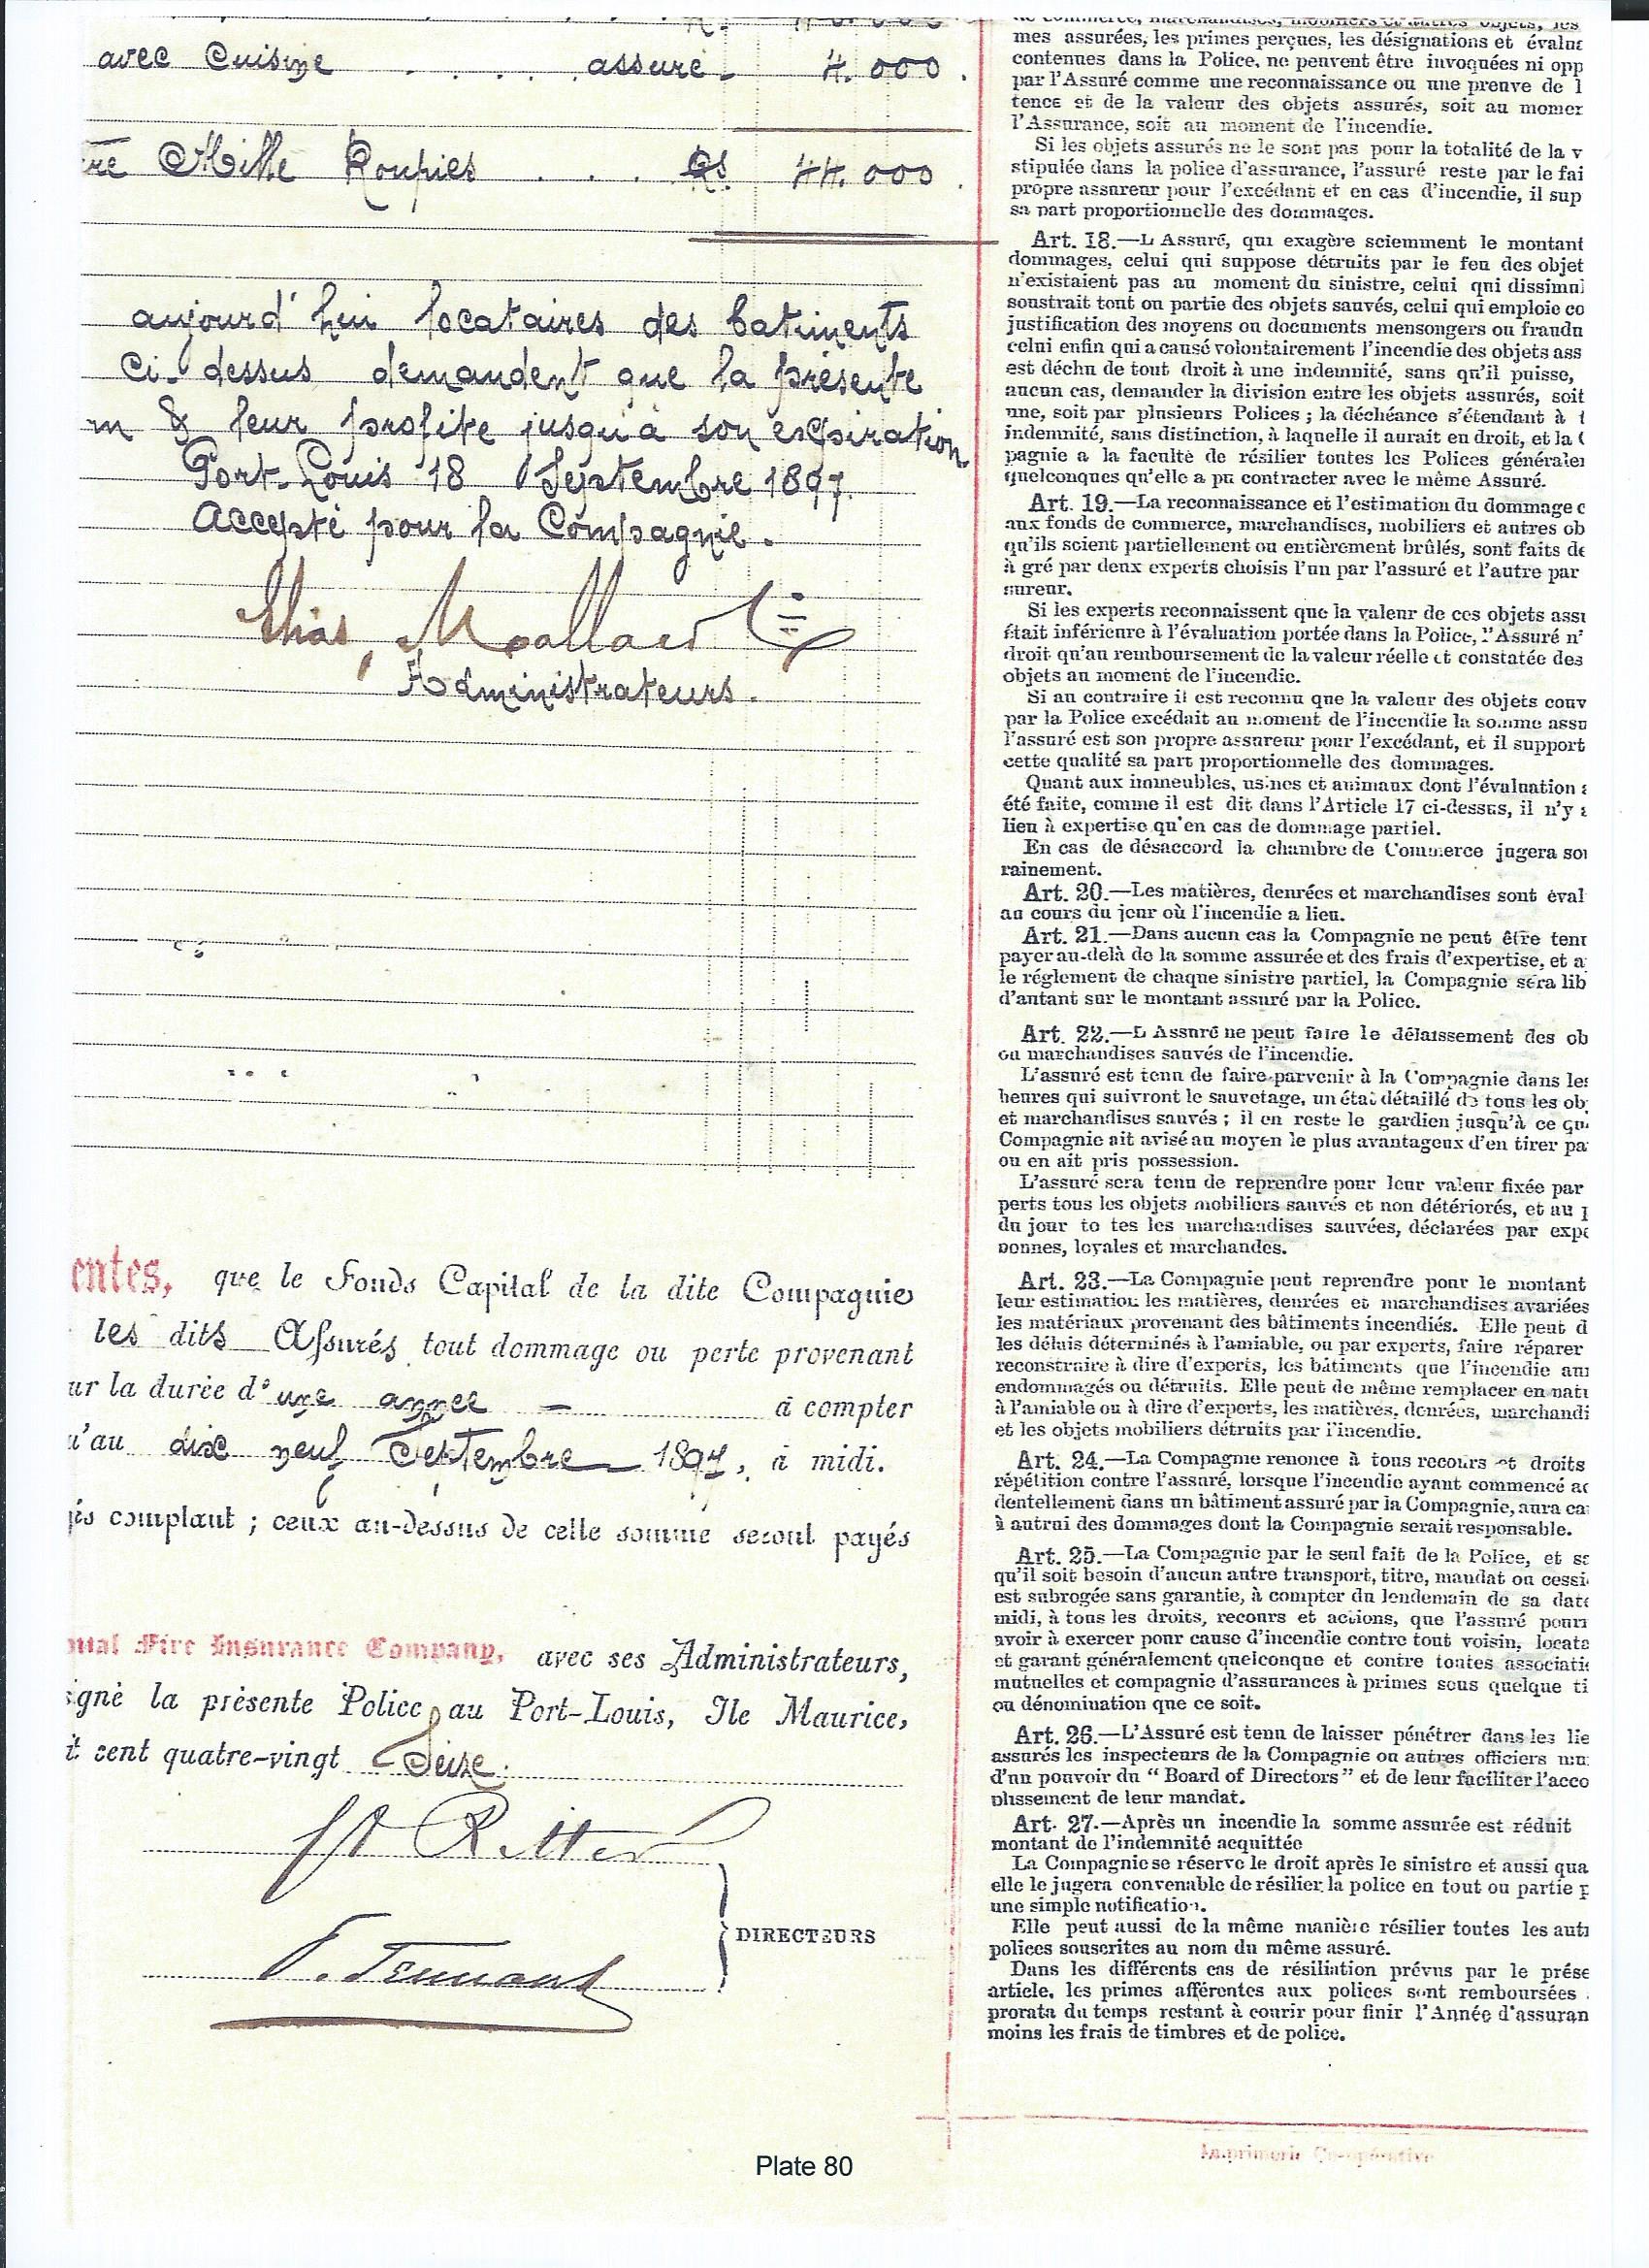 avec Cuisine . . . . assuré - 4.000.
Mille Roupies . . . Rs 44.000.
aujourd'hui locataires des batiments
Ci-dessus demandent que la présente
m & leur profite jusqu'à son expiration
Port-Louis 18 Septembre 1897.
Accepté pour la Compagnie.
Administrateurs.
entes, que le Fonds Capital de la dite Compagnie
les dits Assurés tout dommage ou perte provenant
ur la durée d'une année — à compter
u'au dix neuf Septembre 1897, à midi.
is comptant ; ceux au-dessus de celle somme seront payés
Fire Insurance Company, avec ses Administrateurs,
igné la présente Police au Port-Louis, Ile Maurice,
t cent quatre-vingt Seize.
Ritter
DIRECTEURS
mes assurées, les primes perçues, les désignations et évalu
contenues dans la Police, ne peuvent être invoquées ni opp
par l'Assuré comme une reconnaissance ou une preuve de l
tence et de la valeur des objets assurés, soit au momen
l'Assurance, soit au moment de l'incendie.
Si les objets assurés ne le sont pas pour la totalité de la v
stipulée dans la police d'assurance, l'assuré reste par le fai
propre assureur pour l'excédant et en cas d'incendie, il sup
sa part proportionnelle des dommages.
Art. 18.—L Assuré, qui exagère sciemment le montant
dommages, celui qui suppose détruits par le feu des objet
n'existaient pas au moment du sinistre, celui qui dissimul
soustrait tout ou partie des objets sauvés, celui qui emploie co
justification des moyens ou documents mensongers ou fraudu
celui enfin qui a causé volontairement l'incendie des objets ass
est déchu de tout droit à une indemnité, sans qu'il puisse,
aucun cas, demander la division entre les objets assurés, soit
une, soit par plusieurs Polices ; la déchéance s'étendant à t
indemnité, sans distinction, à laquelle il aurait eu droit, et la C
pagnie a la faculté de résilier toutes les Polices générale
quelconques qu'elle a pu contracter avec le même Assuré.
Art. 19.—La reconnaissance et l'estimation du dommage c
aux fonds de commerce, marchandises, mobiliers et autres ob
qu'ils scient partiellement ou entièrement brûlés, sont faits de
à gré par deux experts choisis l'un par l'assuré et l'autre par
sureur.
Si les experts reconnaissent que la valeur de ces objets assu
était inférieure à l'évaluation portée dans la Police, l'Assuré n'
droit qu'au remboursement de la valeur réelle et constatée des
objets au moment de l'incendie.
Si au contraire il est reconnu que la valeur des objets couv
par la Police excédait au moment de l'incendie la somme assu
l'assuré est son propre assureur pour l'excédant, et il support
cette qualité sa part proportionnelle des dommages.
Quant aux immeubles, usines et animaux dont l'évaluation a
été faite, comme il est dit dans l'Article 17 ci-dessus, il n'y a
lieu à expertise qu'en cas de dommage partiel.
En cas de désaccord la chambre de Commerce jugera sou
rainement.
Art. 20.—Les matières, denrées et marchandises sont éval
au cours du jour où l'incendie a lieu.
Art. 21.—Dans aucun cas la Compagnie ne peut être tenu
payer au-delà de la somme assurée et des frais d'expertise, et a
le réglement de chaque sinistre partiel, la Compagnie sera lib
d'autant sur le montant assuré par la Police.
Art. 22.—L Assuré ne peut faire le délaissement des ob
ou marchandises sauvés de l'incendie.
L'assuré est tenu de faire parvenir à la Compagnie dans les
heures qui suivront le sauvetage, un état détaillé de tous les ob
et marchandises sauvés ; il en reste le gardien jusqu'à ce qu
Compagnie ait avisé au moyen le plus avantageux d'en tirer pa
ou en ait pris possession.
L'assuré sera tenu de reprendre pour leur valeur fixée par
perts tous les objets mobiliers sauvés et non détériorés, et au p
du jour to tes les marchandises sauvées, déclarées par expe
bonnes, loyales et marchandes.
Art. 23.—La Compagnie peut reprendre pour le montant
leur estimation les matières, denrées et marchandises avariées
les matériaux provenant des bâtiments incendiés. Elle peut d
les délais déterminés à l'amiable, ou par experts, faire réparer
reconstruire à dire d'experts, les bâtiments que l'incendie au
endommagés ou détruits. Elle peut de même remplacer en natu
à l'amiable ou à dire d'experts, les matières, denrées, marchandi
et les objets mobiliers détruits par l'incendie.
Art. 24.—La Compagnie renonce à tous recours et droits
répétition contre l'assuré, lorsque l'incendie ayant commencé ac
dentellement dans un bâtiment assuré par la Compagnie, aura ca
à autrui des dommages dont la Compagnie serait responsable.
Art. 25.—La Compagnie par le seul fait de la Police, et sa
qu'il soit besoin d'aucun autre transport, titre, mandat ou cessi
est subrogée sans garantie, à compter du lendemain de sa date
midi, à tous les droits, recours et actions, que l'assuré pourr
avoir à exercer pour cause d'incendie contre tout voisin, locata
et garant généralement quelconque et contre toutes associati
mutuelles et compagnie d'assurances à primes sous quelque ti
ou dénomination que ce soit.
Art. 26.—L'Assuré est tenu de laisser pénétrer dans les lie
assurés les inspecteurs de la Compagnie ou autres officiers mu
d'un pouvoir du "Board of Directors" et de leur faciliter l'acco
plissement de leur mandat.
Art. 27.—Après un incendie la somme assurée est réduit
montant de l'indemnité acquittée
La Compagnie se réserve le droit après le sinistre et aussi qua
elle le jugera convenable de résilier la police en tout ou partie p
une simple notification.
Elle peut aussi de la même manière résilier toutes les aut
polices souscrites au nom du même assuré.
Dans les différents cas de résiliation prévus par le prése
article, les primes afférentes aux polices sont remboursées
prorata du temps restant à courir pour finir l'Année d'assuran
moins les frais de timbres et de police.
Imprimerie Co-opérative
Plate 80